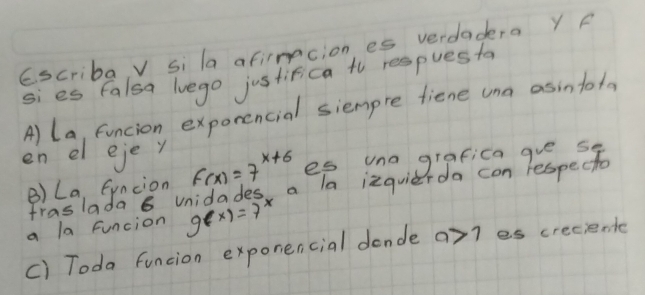 Escriba V si la afirmacion es verdadera y F
si es falsa luego justifica tu respuesta
A) La funcion exponencial siempre tiene una asintota
en el eje y
B) La funcion f(x) = 7^x+6 es una grafica que se
traslada 6 unidades a la izquierda con respecto
a la funcion g(x) = 7^x
C) Toda funcion exponencial donde a>1 es creciente